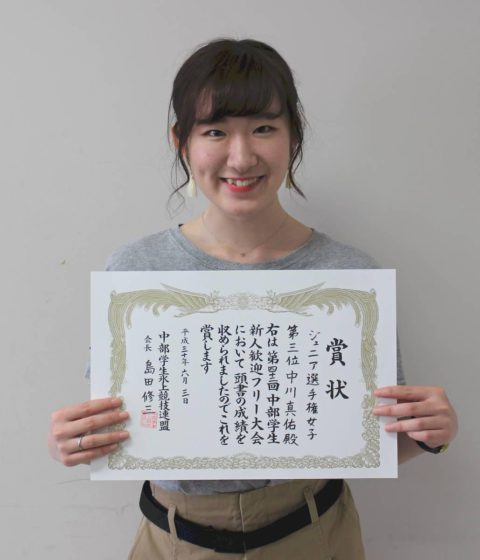 賞状
ジュニア選手権女子
第三位 中川真佑殿
右は第四三回中部学生
新人歓迎フリー大会
において頭書の成績を
収められましたのでこれを
賞します
平成三十年六月三日
中部学生氷上競技連盟
会長 島田修三